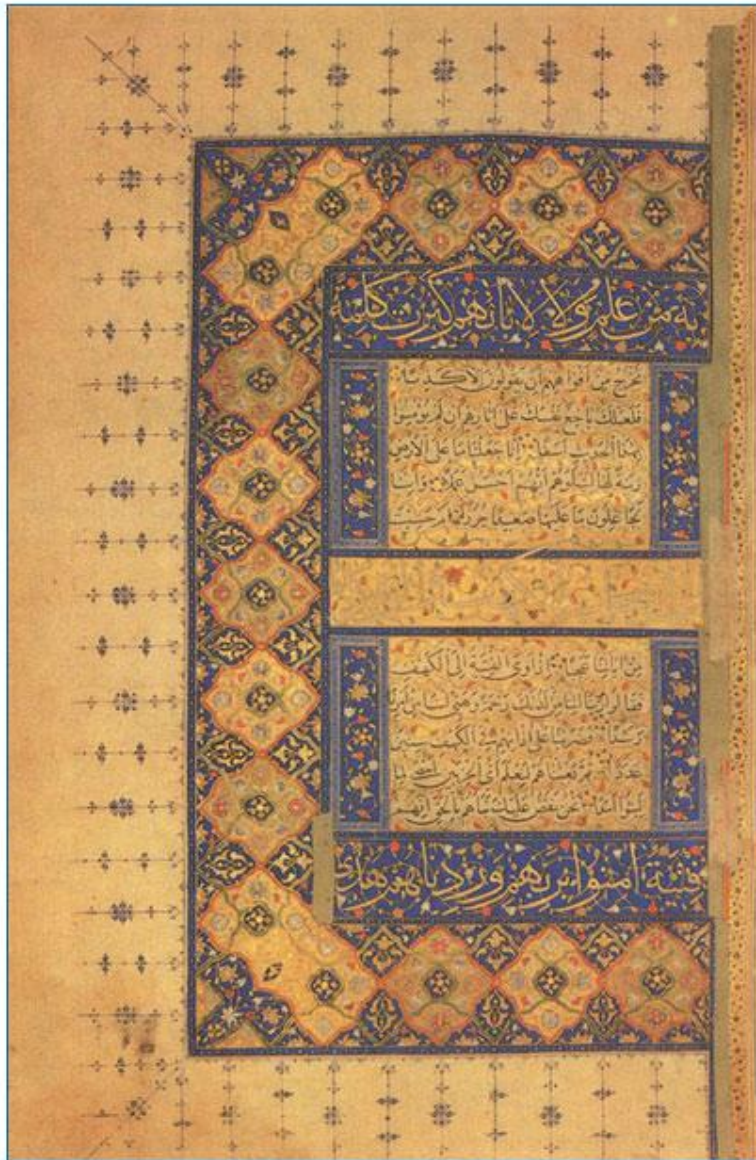 به من علم ولا لابائهم كبرت كلمة
تخرج من افواههم ان يقولون الا كذبا
فلعلك باخع نفسك على اثارهم ان لم يؤمنوا
بهذا الحديث اسفا انا جعلنا ما على الارض
زينة لها لنبلوهم ايهم احسن عملا وانا
لجاعلون ما عليها صعيدا جرزا ام حسبت
من اياتنا عجبا اذ اوى الفتية الى الكهف
فقالوا ربنا اتنا من لدنك رحمة وهيئ لنا من امرنا
رشدا فضربنا على اذانهم في الكهف سنين
عددا ثم بعثناهم لنعلم اي الحزبين احصى لما
لبثوا امدا نحن نقص عليك نباهم بالحق انهم
فتية امنوا بربهم وزدناهم هدى